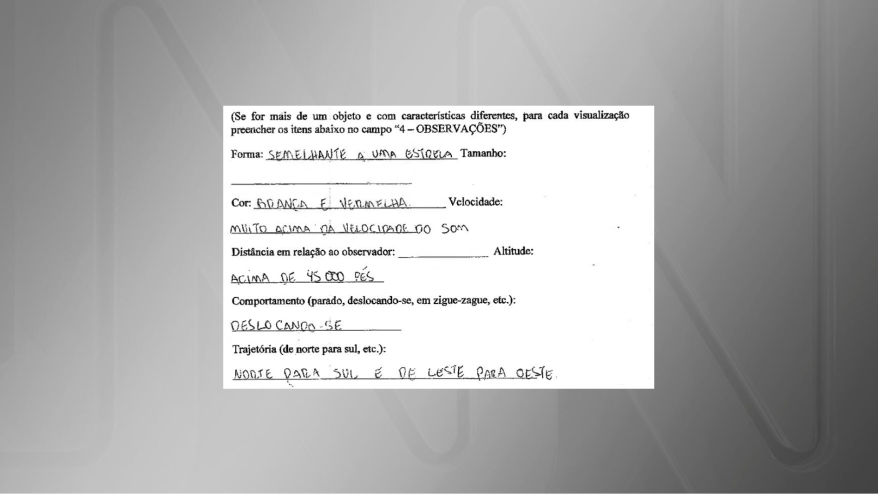 (Se for mais de um objeto e com características diferentes, para cada visualização
preencher os itens abaixo no campo "4 – OBSERVAÇÕES")
Forma: SEMELHANTE A UMA ESTRELA Tamanho:
Cor: BRANCA E VERMELHA. Velocidade:
MUITO ACIMA DA VELOCIDADE DO SOM
Distância em relação ao observador: Altitude:
ACIMA DE 45000 PÉS
Comportamento (parado, deslocando-se, em zigue-zague, etc.):
DESLOCANDO-SE
Trajetória (de norte para sul, etc.):
NORTE PARA SUL E DE LESTE PARA OESTE.